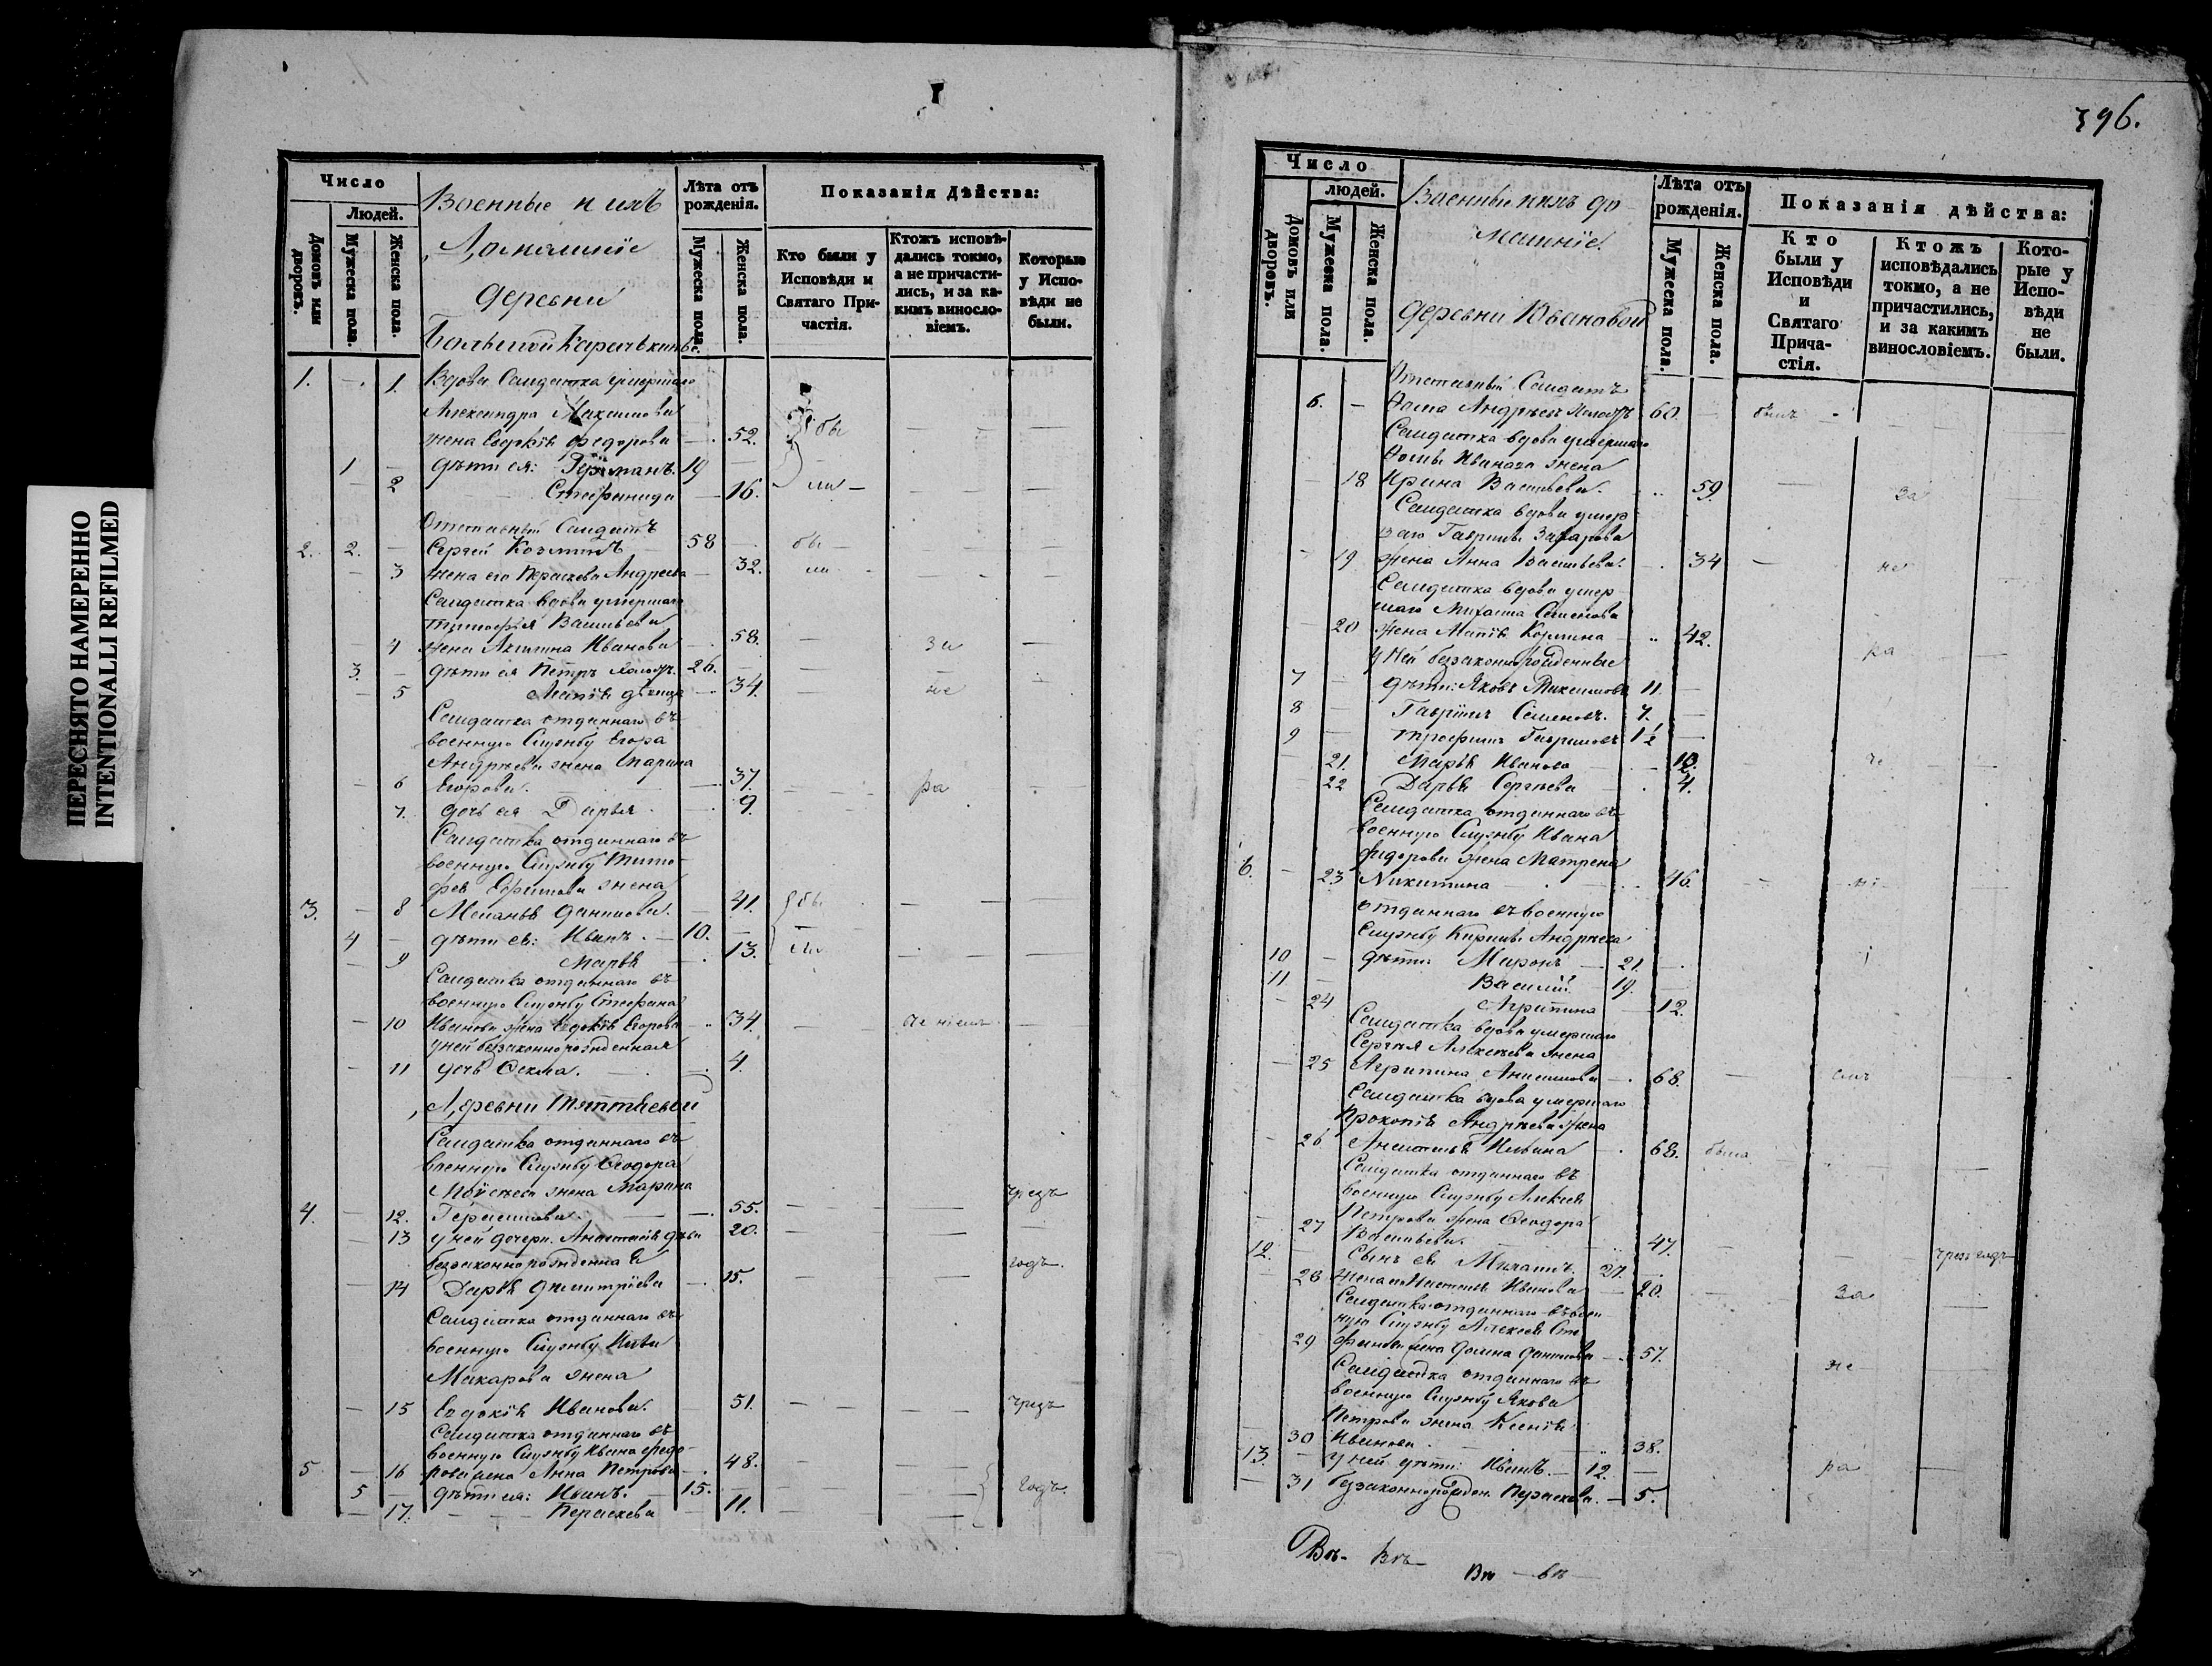 ПЕРЕСНЯТО НАМЕРЕННО
INTENTIONALLI REFILMED
Число
Людей.
Домовъ или дворовъ.
Мужеска пола.
Женска пола.
Военные и ихъ
Домашніе
деревни
Большой
Лѣта отъ рожденія.
Мужеска пола.
Женска пола.
Показанія Дѣйства:
Кто были у Исповѣди и Святаго Причастія.
Ктожъ исповѣдались токмо, а не причастились, и за какимъ винословіемъ.
Которые у Исповѣди не были.
1. - 1. Вдова Салдатка умершаго
Александра Максимова
жена Евдокія Федорова — 52. бы
1 — дѣти ея: Германъ. 19 —
— 2 Стефанида — 16. ли —
Отставный Салдатъ
2. 2. — Сергей Козминъ 58 — бы
— 3 жена его Параскева Андреева — 32. ли
Салдатка вдова умершаго
Тимофея Васильева
4 жена Акилина Иванова — 58. — за —
3. — дѣти ея Петръ холост. 26. —
— 5 дѣвица — 34. — не
Салдатка отданнаго въ
военную Службу Егора
Андреева жена Марина
— 6 Егорова. — 37. — ра
7. дочь ея Дарья — 9.
Салдатка отданнаго въ
военную Службу Тимо-
фея Ефимова жена
3. — 8 Меланья Данилова. — 41. бы — —
4 — дѣти ея: Иванъ. — 10. —
— 9 Марья — 13. ли
Салдатка отданнаго въ
военную Службу Стефана
— 10 Иванова жена Евдокія Егорова — 34. —
у ней беззаконнорожденная
— 11 дочь Фекла. — 4.
Деревни
Салдатка отданнаго въ
военную Службу Феодора
Моѵсеева жена Марина
4. — 12. Герасимова — 55. — чрезъ
— 13 у ней дочери. Анастасія дѣв. 20. —
беззаконнорожденная годъ.
— 14 Дарья Димитріева — 15.
Салдатка отданнаго въ
военную Службу
Макарова жена
— 15 Евдокія Иванова. 51. — чрезъ
Салдатка отданнаго въ
военную Службу Ивана Федо-
5 — 16 рова жена Анна Петрова — 48.
5 — дѣти ея: Иванъ. — 15. — годъ.
— 17. Параскева 11.
396.
Число
людей.
Домовъ или дворовъ.
Мужеска пола.
Женска пола.
Военные и ихъ до
машніе.
деревни Ювановой
Лѣта отъ рожденія.
Мужеска пола.
Женска пола.
Показанія дѣйства:
Кто были у Исповѣди и Святаго Причастія.
Ктожъ исповѣдались токмо, а не причастились, и за какимъ винословіемъ.
Которые у Исповѣди не были.
Отставный Салдатъ
6. — Фома Андреевъ холост. 60 — былъ
Салдатка вдова умершаго
Фомы Иванова жена
— 18 Ирина Васильева. 59. — за
Салдатка вдова умер
шаго Гаврилы Захарова
— 19 жена Анна Васильева. 34 — не
Салдатка вдова умер
шаго Михаила Семенова
— 20 жена Козмина — 42. ра
у ней беззаконнорожденные
7 — дѣти: Яковъ Максимовъ 11. —
8 — Гаврилъ Семеновъ. 7. —
9 — Трофимъ Гавриловъ 1½ —
21. Марья Иванова — 10.
22 Дарья Сергеева — 4.
Салдатка отданнаго въ
военную Службу Ивана
Федорова жена Матрена
6. — 23 Никитина — 46.
отданнаго въ военную
Службу Кирилы Андреева
10 — дѣти Миронъ — 21. —
11 — Василій — 19. —
— 24 Агрипина — 12.
Салдатка вдова умершаго
Сергея Алексеева жена
— 25 Агрипина Анисимова — 68. —
Салдатка вдова умершаго
Прокопія Андреева жена
— 26 Анастасія Ильина 68. была
Салдатка отданнаго въ
военную Службу Алексея
Петрова жена Феодора
27 Васильева. 47. —
12. — Сынъ ея 27. — чрезъ годъ
28 жена его Иванова — 20. — за
Салдатка отданнаго въ воен
ную Службу Алексея Сте
29 фанова жена Данилова — 57. не
Салдатка отданнаго въ
военную Службу Якова
Петрова жена Ксенія
30 Иванова. — 38.
13 — у ней дѣти: Иванъ. — 12. — ра
— 31 беззаконнорожден. Параскева. — 5.